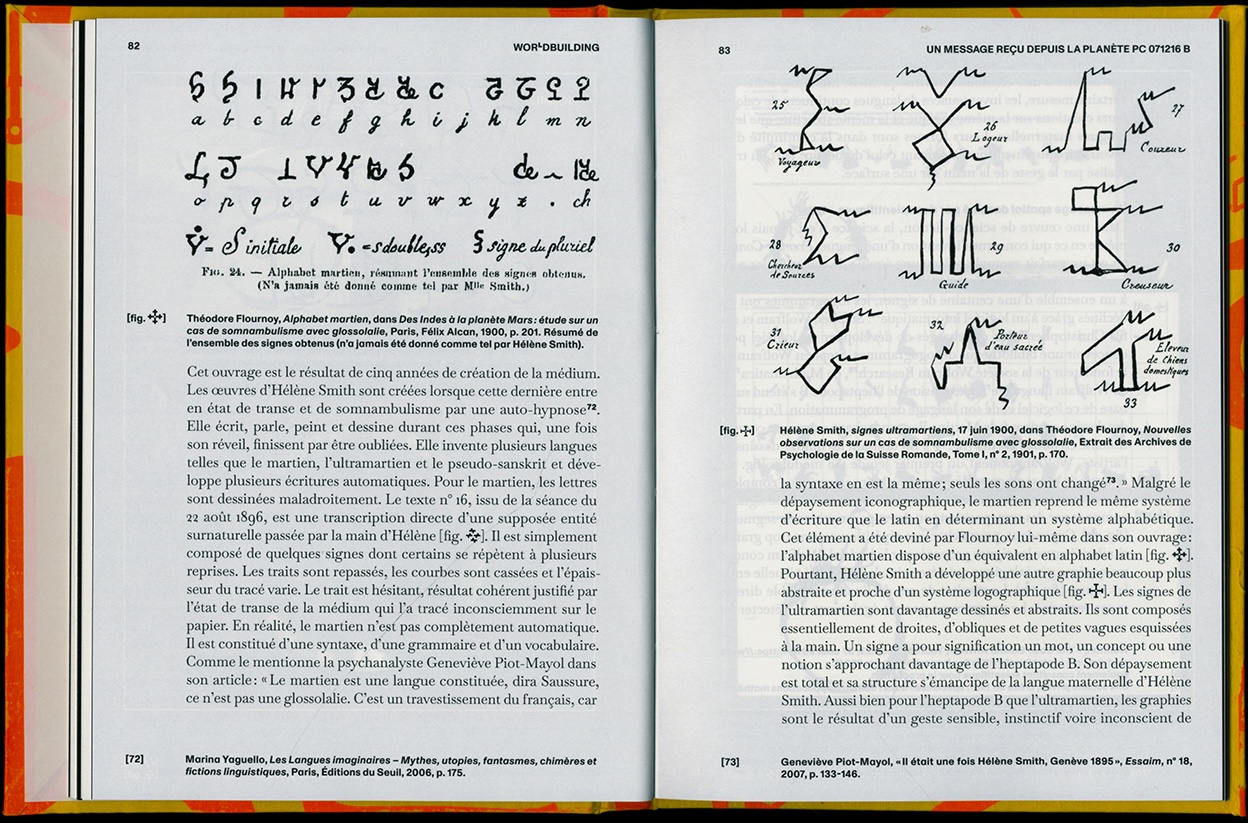 82
WORLDBUILDING
a b c d e f g h i j k l m n
o p q r s t u v w x y z . ch
= S initiale = s double, ss signe du pluriel
FIG. 24. — Alphabet martien, résumant l'ensemble des signes obtenus.
(N'a jamais été donné comme tel par Mlle Smith.)
[fig. ] Théodore Flournoy, Alphabet martien, dans Des Indes à la planète Mars : étude sur un
cas de somnambulisme avec glossolalie, Paris, Félix Alcan, 1900, p. 201. Résumé de
l'ensemble des signes obtenus (n'a jamais été donné comme tel par Hélène Smith).
Cet ouvrage est le résultat de cinq années de création de la médium.
Les œuvres d'Hélène Smith sont créées lorsque cette dernière entre
en état de transe et de somnambulisme par une auto-hypnose72.
Elle écrit, parle, peint et dessine durant ces phases qui, une fois
son réveil, finissent par être oubliées. Elle invente plusieurs langues
telles que le martien, l'ultramartien et le pseudo-sanskrit et déve-
loppe plusieurs écritures automatiques. Pour le martien, les lettres
sont dessinées maladroitement. Le texte n° 16, issu de la séance du
22 août 1896, est une transcription directe d'une supposée entité
surnaturelle passée par la main d'Hélène [fig. ]. Il est simplement
composé de quelques signes dont certains se répètent à plusieurs
reprises. Les traits sont repassés, les courbes sont cassées et l'épais-
seur du tracé varie. Le trait est hésitant, résultat cohérent justifié par
l'état de transe de la médium qui l'a tracé inconsciemment sur le
papier. En réalité, le martien n'est pas complètement automatique.
Il est constitué d'une syntaxe, d'une grammaire et d'un vocabulaire.
Comme le mentionne la psychanalyste Geneviève Piot-Mayol dans
son article : « Le martien est une langue constituée, dira Saussure,
ce n'est pas une glossolalie. C'est un travestissement du français, car
[72] Marina Yaguello, Les Langues imaginaires – Mythes, utopies, fantasmes, chimères et
fictions linguistiques, Paris, Éditions du Seuil, 2006, p. 175.
83
UN MESSAGE REÇU DEPUIS LA PLANÈTE PC 071216 B
25
Voyageur
26
Logeur
27
Coureur
28
Chercheur
de Sources
29
Guide
30
Creuseur
31
Crieur
32
Porteur
d'eau sacrée
Eleveur
de chiens
domestiques
33
[fig. ] Hélène Smith, signes ultramartiens, 17 juin 1900, dans Théodore Flournoy, Nouvelles
observations sur un cas de somnambulisme avec glossolalie, Extrait des Archives de
Psychologie de la Suisse Romande, Tome I, n° 2, 1901, p. 170.
la syntaxe en est la même ; seuls les sons ont changé73. » Malgré le
dépaysement iconographique, le martien reprend le même système
d'écriture que le latin en déterminant un système alphabétique.
Cet élément a été deviné par Flournoy lui-même dans son ouvrage :
l'alphabet martien dispose d'un équivalent en alphabet latin [fig. ].
Pourtant, Hélène Smith a développé une autre graphie beaucoup plus
abstraite et proche d'un système logographique [fig. ]. Les signes de
l'ultramartien sont davantage dessinés et abstraits. Ils sont composés
essentiellement de droites, d'obliques et de petites vagues esquissées
à la main. Un signe a pour signification un mot, un concept ou une
notion s'approchant davantage de l'heptapode B. Son dépaysement
est total et sa structure s'émancipe de la langue maternelle d'Hélène
Smith. Aussi bien pour l'heptapode B que l'ultramartien, les graphies
sont le résultat d'un geste sensible, instinctif voire inconscient de
[73] Geneviève Piot-Mayol, « Il était une fois Hélène Smith, Genève 1895 », Essaim, n° 18,
2007, p. 133-146.